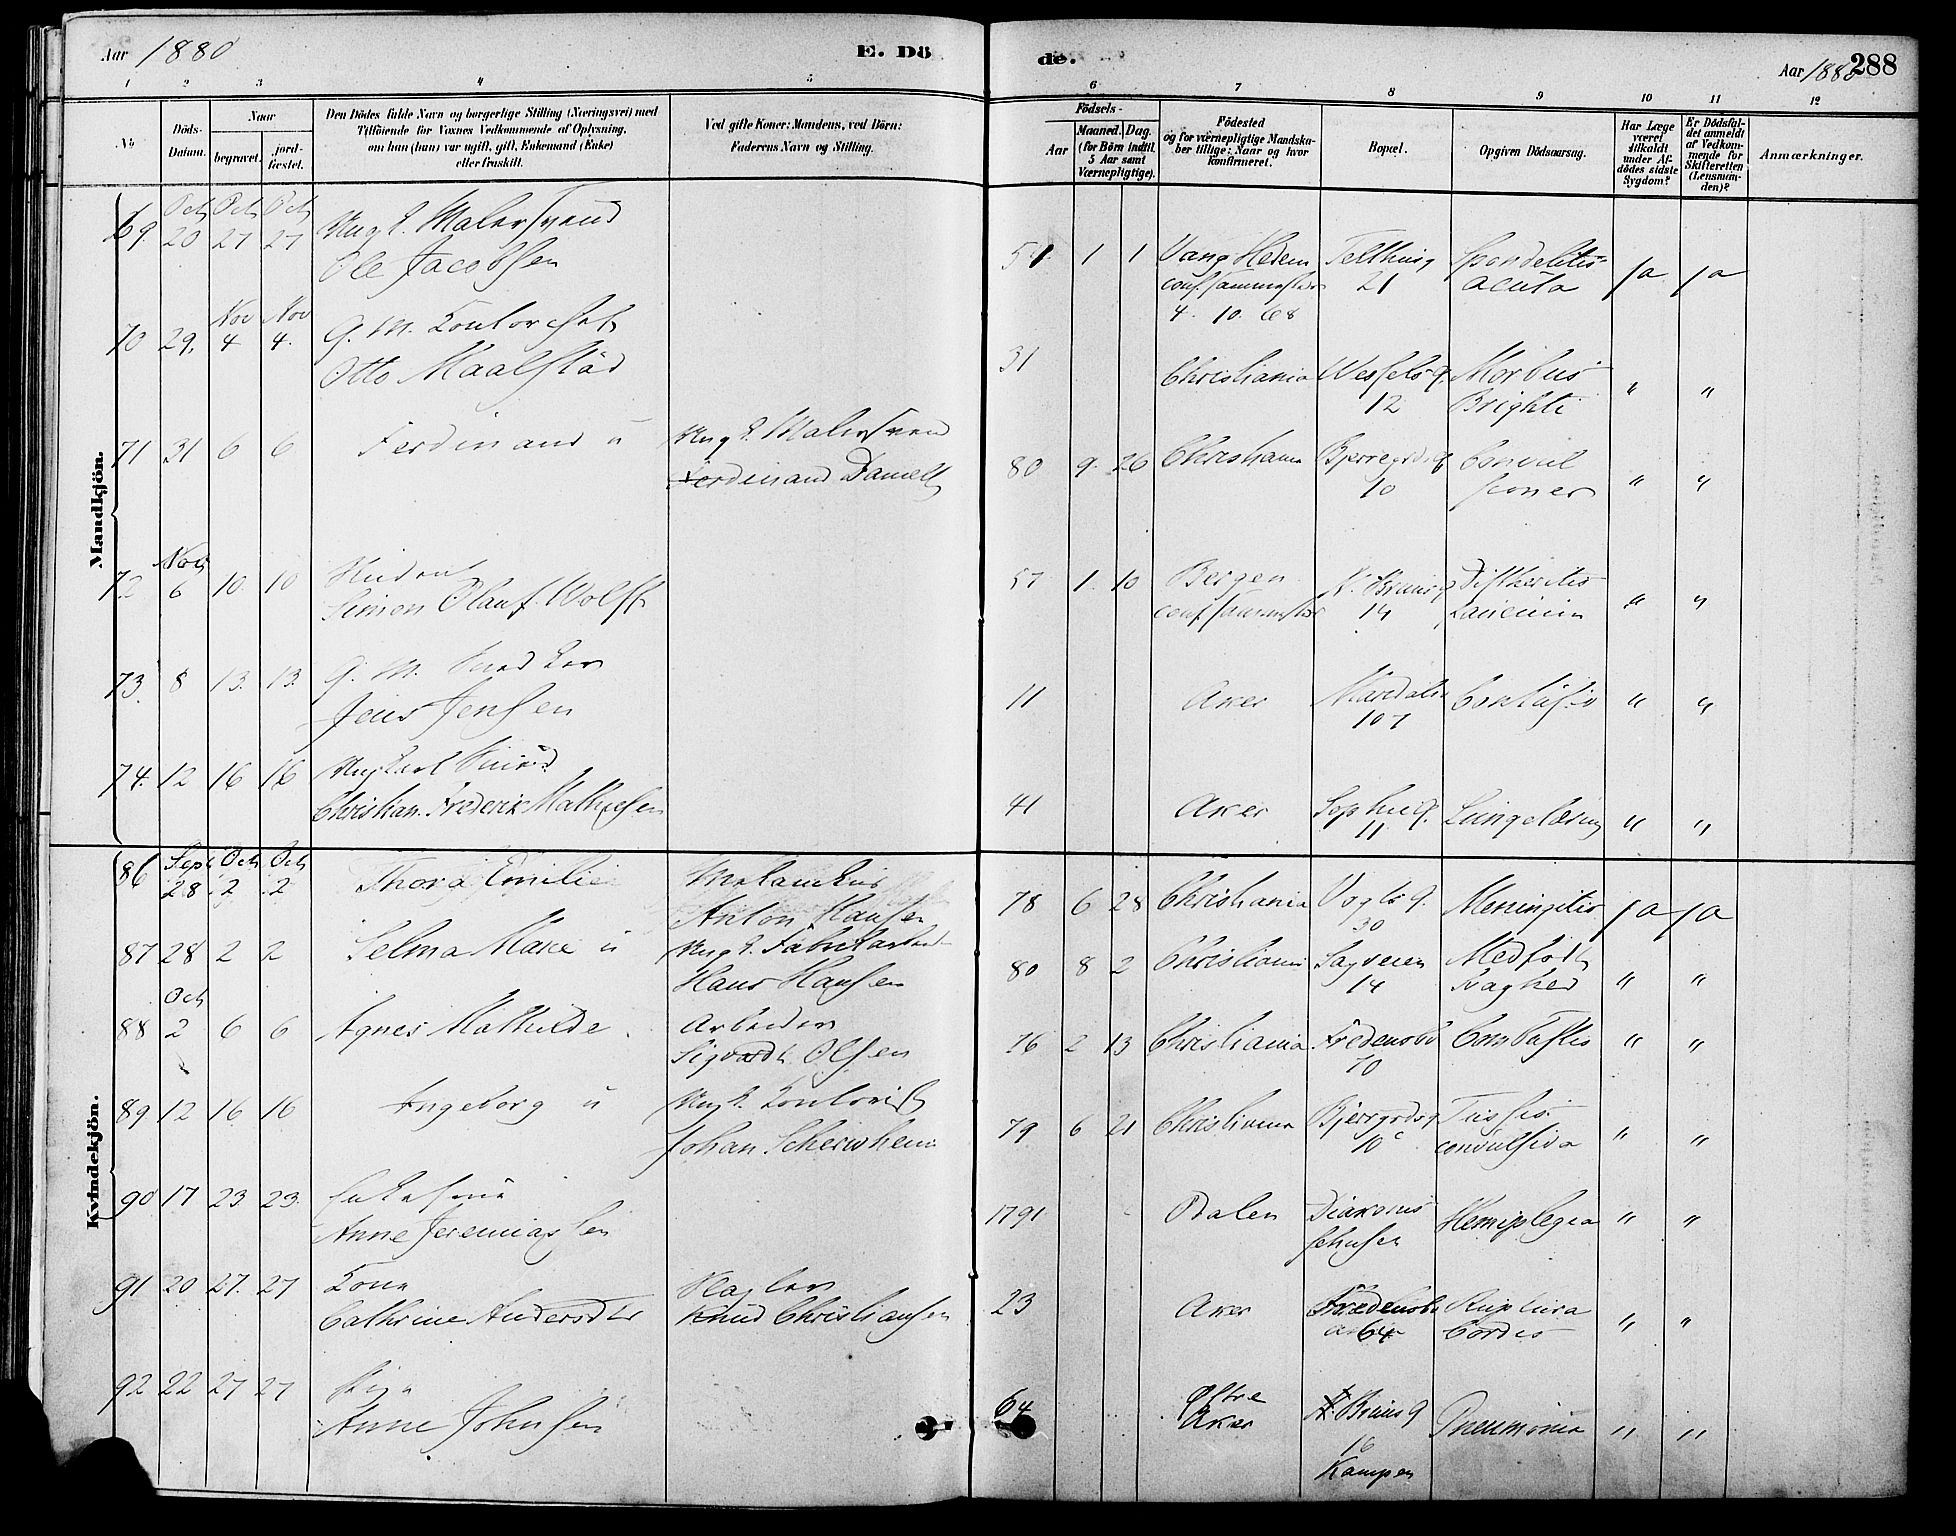 Aar 1880
E. Dö
de.
Aar 188
288
1 2 3 4 5
6 7 8 9 10 11 12
No
Döds-
Datum.
Naar
begravet.
jord-
fæstet.
Den Dödes fulde Navn og borgerlige Stilling (Næringsvei) med
Tilföiende for Voxnes Vedkommende af Oplysning,
om han (hun) var ugift, gift, Enkemand (Enke)
eller fraskilt.
Ved gifte Koner: Mandens, ved Börn:
Faderens Navn og Stilling.
Födsels-
Aar
Maaned.
Dag.
(for Börn indtil
5 Aar samt
Værnepligtige).
Födested
og for værnepligtige Mandska-
ber tillige: Naar og hvor
konfirmeret.
Bopæl.
Opgiven Dödsaarsag.
Har Læge
været
tilkaldt
under Af-
dödes sidste
Sygdom?
Er Dödsfal-
det anmeldt
af Vedkom-
mende for
Skifteretten
(Lensman-
den)?
Anmærkninger.
Mandkjön.
69 Oct 20 Oct 27 Oct 27 Ungk. Malersvend
Ole Jacobsen
51 1 1 Vang Hedem
conf. sammesteds
4. 10. 68
21
acuta
ja ja
70 29. Nov 4 Nov 4. G. M. Kontorist
Otto Maalstad
31 Christiania Wessels g. 12 Morbus
Brighti " "
71 31 6 6 Ferdinand u Ungk. Malersvend
Ferdinand Daniels
80 9. 26 Christiania 10 Convul
sioner " "
72 Nov 6 10. 10 Student
Simon Olauf Wolff
57 1. 10 Bergen
conf. sammesteds
N. Bruns g 14 " "
73. 8 13. 13.
G. M.
Jens Jensen
11 Aker Maridalsv 107 Contusio " "
74. 12 16 16
Christian Frederik Mathiesen
41 Aker Sophieg. 11 " "
Kvindekjön.
86 Sept 28 Oct 2 Oct 2 Thora Emilie
Anton Hansen
78 6 28 Christiania Vogts g. 30 Meningitis ja ja
87 28 2 2 Selma Marie u Ungk. Fabrikarbeid
Hans Hansen
80 8 2 Christiania Sagveien 14 Medfödt
Svaghed " "
88 Oct 2 6 6 Agnes Mathilde Arbeider
Sigvardt Olsen
76 2 13 Christiania Fredensbo 70 Combustio " "
89 12 16 16 Ingeborg u Ungk. Kontorist
Johan
79 6 21 Christiania 10 c Tussis
convulsiva " "
90 17 23 23.
Anne Jeremiassen
1791 Odalen Diakonis
sehusen
Hemiplegia " "
91 20 27. 27 Kone
Cathrine Andersdtr
Knud Christiansen
23 Aker Fredensbo
64
Ruptura
Cordis " "
92 22 27 27 Pige
Anne Johnsen
64 Østre
Aker
N. Bruns g
16
Kampen
Pneumonia " "